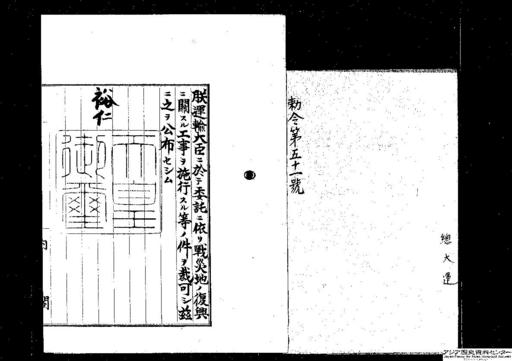 勅令第五十一號
總
大
運
朕運輸大臣ニ於テ委託ニ依リ戰災地ノ復興
ニ關スル工事ヲ施行スル等ノ件ヲ裁可シ茲
ニ之ヲ公布セシム
裕仁
天皇
御璽
內
閣
アジア歴史資料センター